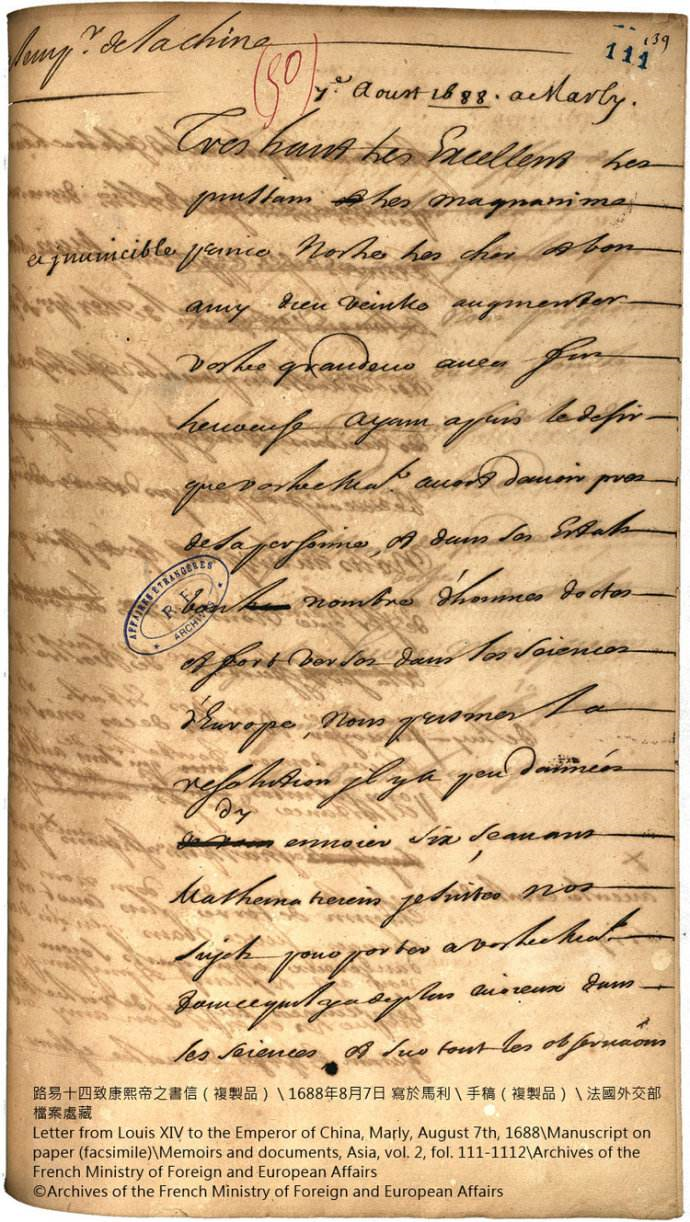 A l'Emp.r de la chine
(90)
111
139
7.e Aoust 1688. a Marly.
Tres haut tres Excellent tres
puissant et tres magnanime
et jnuincible prince Nostre tres cher et bon
amy dieu veuille augmenter
vostre grandeur auec fin
heureuse ayant apris le desir
que vostre Ma.té auoit d'auoir pres
de sa personne, et dans ses Estats
bon nombre d'hommes doctes
et fort versez dans les sciences
d'Europe, Nous prismes la
resolution jl y a peu d'années
dy
ennoier six sçauans
Mathematiciens jesuites nos
sujets pour porter a vostre Ma.té
tout ce qu'il y a de plus curieux dans
les sciences et sur tout les obseruaõns
AFFAIRES ETRANGERES
R.F.
ARCHIVES
路易十四致康熙帝之書信（複製品）\ 1688年8月7日 寫於馬利 \ 手稿（複製品）\ 法國外交部
檔案處藏
Letter from Louis XIV to the Emperor of China, Marly, August 7th, 1688\Manuscript on
paper (facsimile)\Memoirs and documents, Asia, vol. 2, fol. 111-1112\Archives of the
French Ministry of Foreign and European Affairs
©Archives of the French Ministry of Foreign and European Affairs